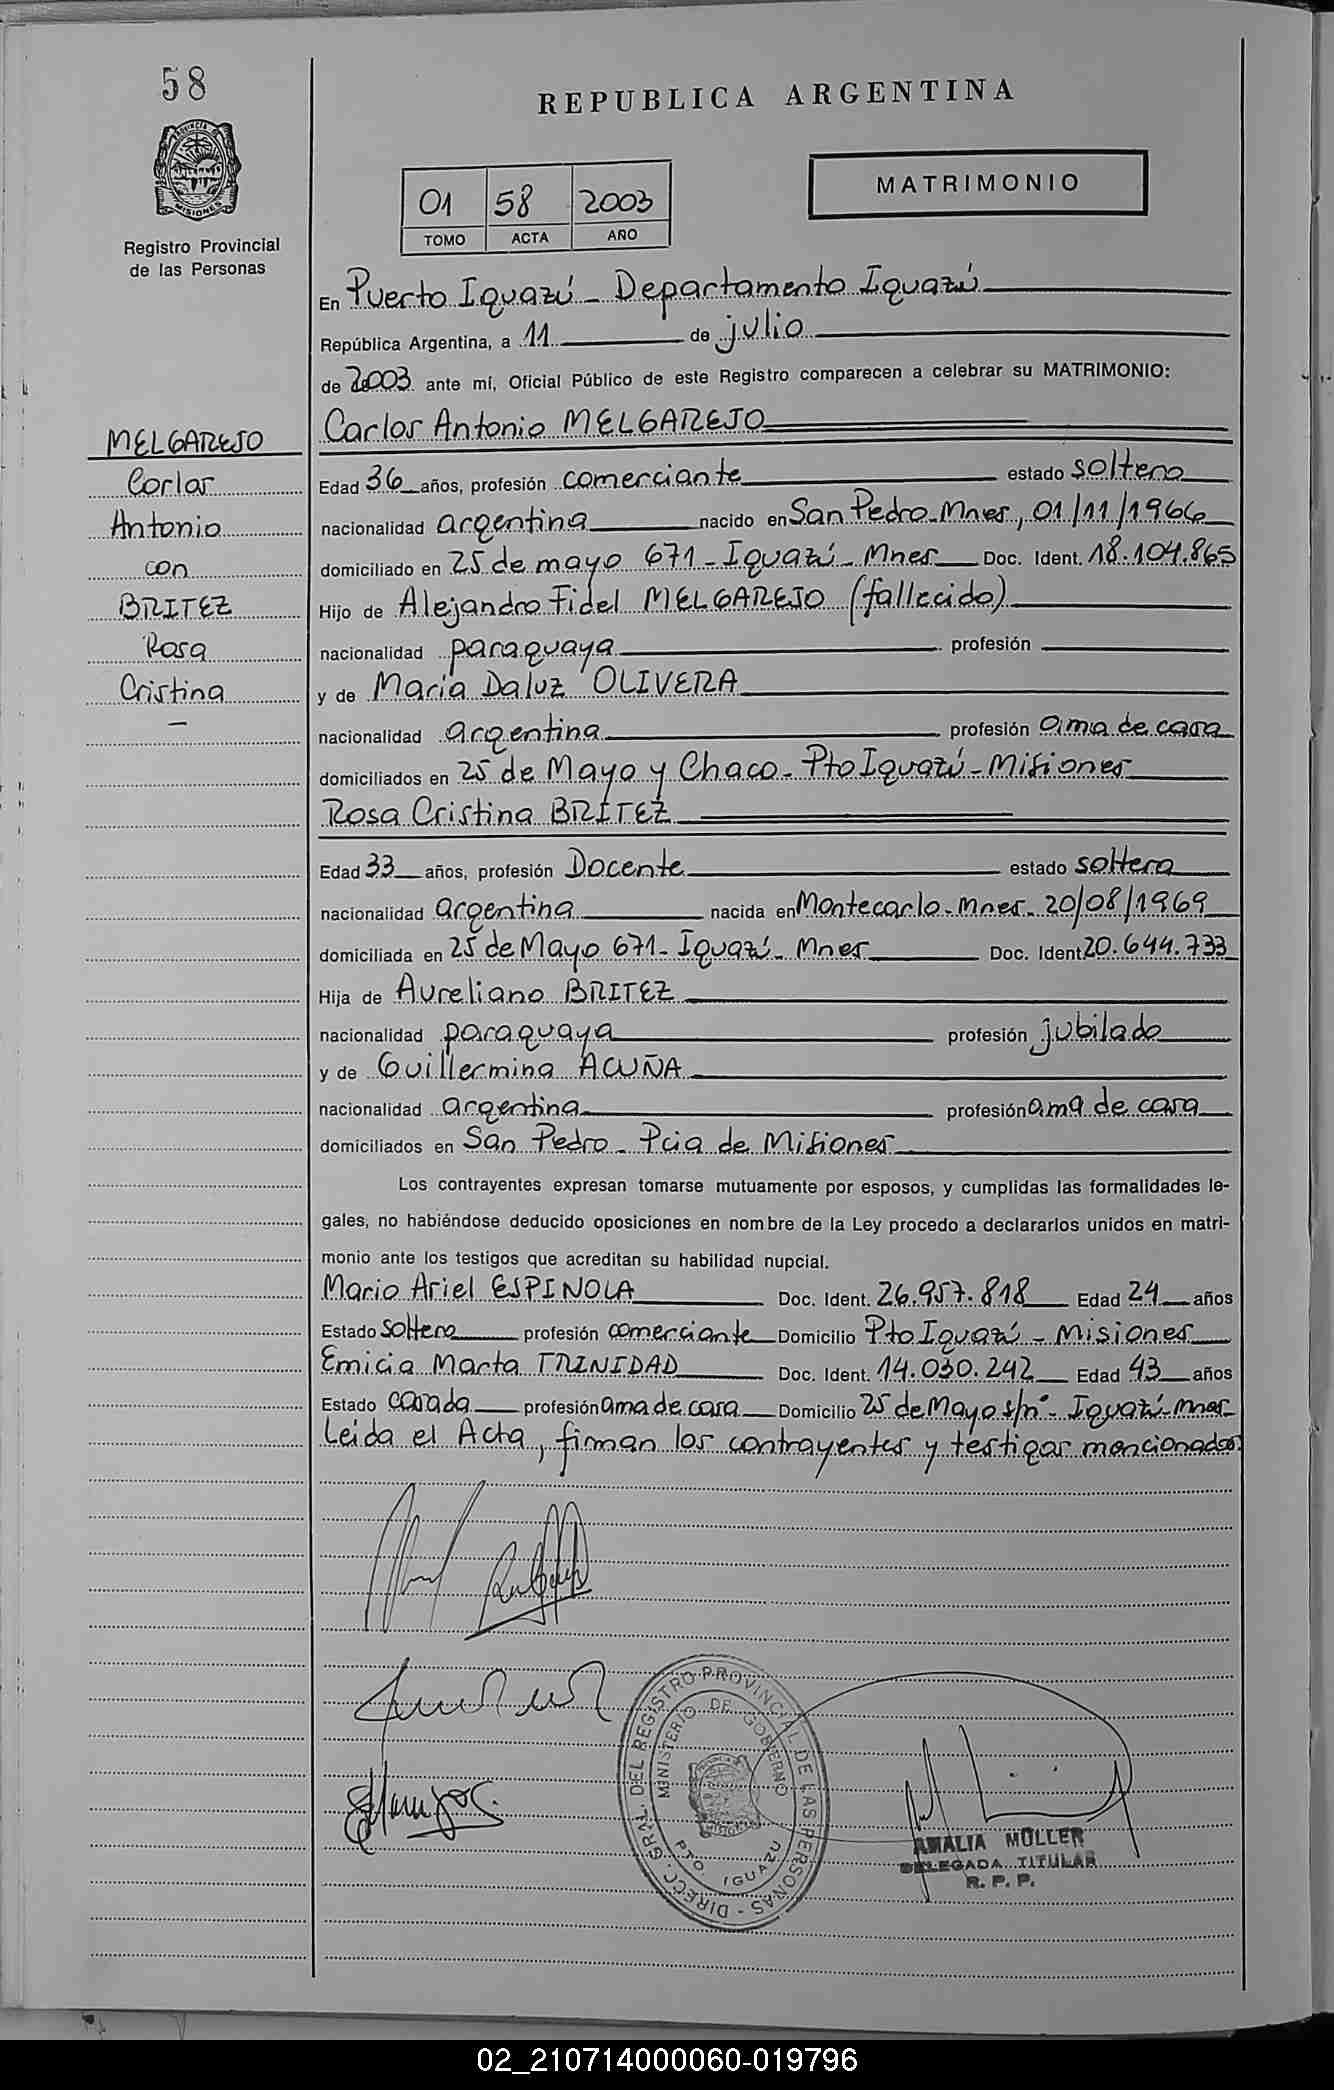 58
REPUBLICA ARGENTINA
PROVINCIA DE
MISIONES
Registro Provincial
de las Personas
MATRIMONIO
01 58 2003
TOMO ACTA AÑO
En Puerto Iguazú - Departamento Iguazú
República Argentina, a 11 de julio
de 2003 ante mí, Oficial Público de este Registro comparecen a celebrar su MATRIMONIO:
MELGAREJO
Carlos
Antonio
con
BRITEZ
Rosa
Cristina
-
Carlos Antonio MELGAREJO
Edad 36 años, profesión comerciante estado soltero
nacionalidad argentina nacido en San Pedro-Mnes, 01/11/1966
domiciliado en 25 de mayo 671 - Iguazú - Mnes Doc. Ident. 18.104.865
Hijo de Alejandro Fidel MELGAREJO (fallecido)
nacionalidad paraguaya profesión
y de María Daluz OLIVERA
nacionalidad argentina profesión ama de casa
domiciliados en 25 de Mayo y Chaco - Pto Iguazú - Misiones
Rosa Cristina BRITEZ
Edad 33 años, profesión Docente estado soltera
nacionalidad argentina nacida en Montecarlo-Mnes- 20/08/1969
domiciliada en 25 de Mayo 671- Iguazú - Mnes Doc. Ident 20.644.733
Hija de Aureliano BRITEZ
nacionalidad paraguaya profesión jubilado
y de Guillermina ACUÑA
nacionalidad argentina profesión ama de casa
domiciliados en San Pedro - Pcia de Misiones
Los contrayentes expresan tomarse mutuamente por esposos, y cumplidas las formalidades le-
gales, no habiéndose deducido oposiciones en nombre de la Ley procedo a declararlos unidos en matri-
monio ante los testigos que acreditan su habilidad nupcial.
Mario Ariel ESPINOLA Doc. Ident. 26.957.818 Edad 24 años
Estado soltero profesión comerciante Domicilio Pto Iguazú - Misiones
Emicia Marta TRINIDAD Doc. Ident. 14.030.242 Edad 43 años
Estado casada profesión ama de casa Domicilio 25 de Mayo s/nº- Iguazú-Mnes-
Leida el Acta, firman los contrayentes y testigos mencionados.
DIRECC. GRAL. DEL REGISTRO PROVINCIAL DE LAS PERSONAS -
MINISTERIO DE GOBIERNO
PTO. IGUAZU
AMALIA MÜLLER
DELEGADA TITULAR
R. P. P.
02_210714000060-019796